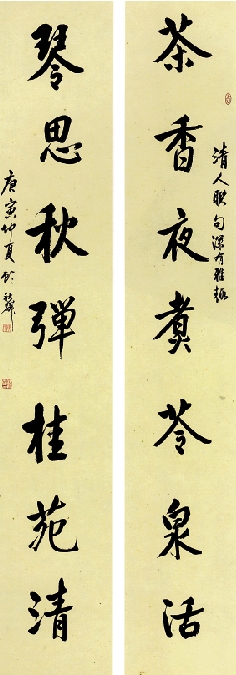 茶香夜煮苓泉活
清人联句深有雅趣
琴思秋弹桂苑清
庚寅仲夏於